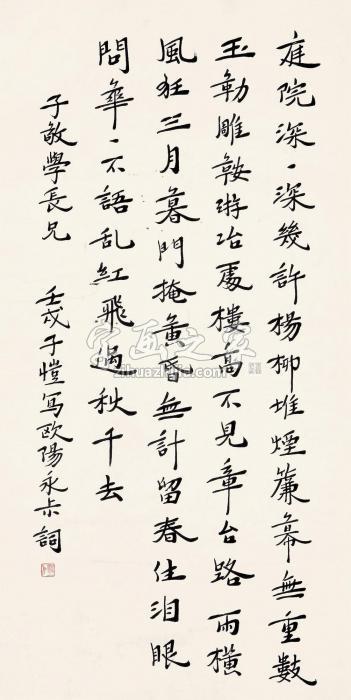 庭院深〻深幾許楊柳堆煙簾幕無重數
玉勒雕鞍游冶處樓高不見章台路雨橫
風狂三月暮門掩黃昏無計留春住泪眼
問華〻不語乱紅飛過秋千去
子敏學長兄 壬戌子愷写欧陽永叔詞
字画之家
zihuazhijia.com